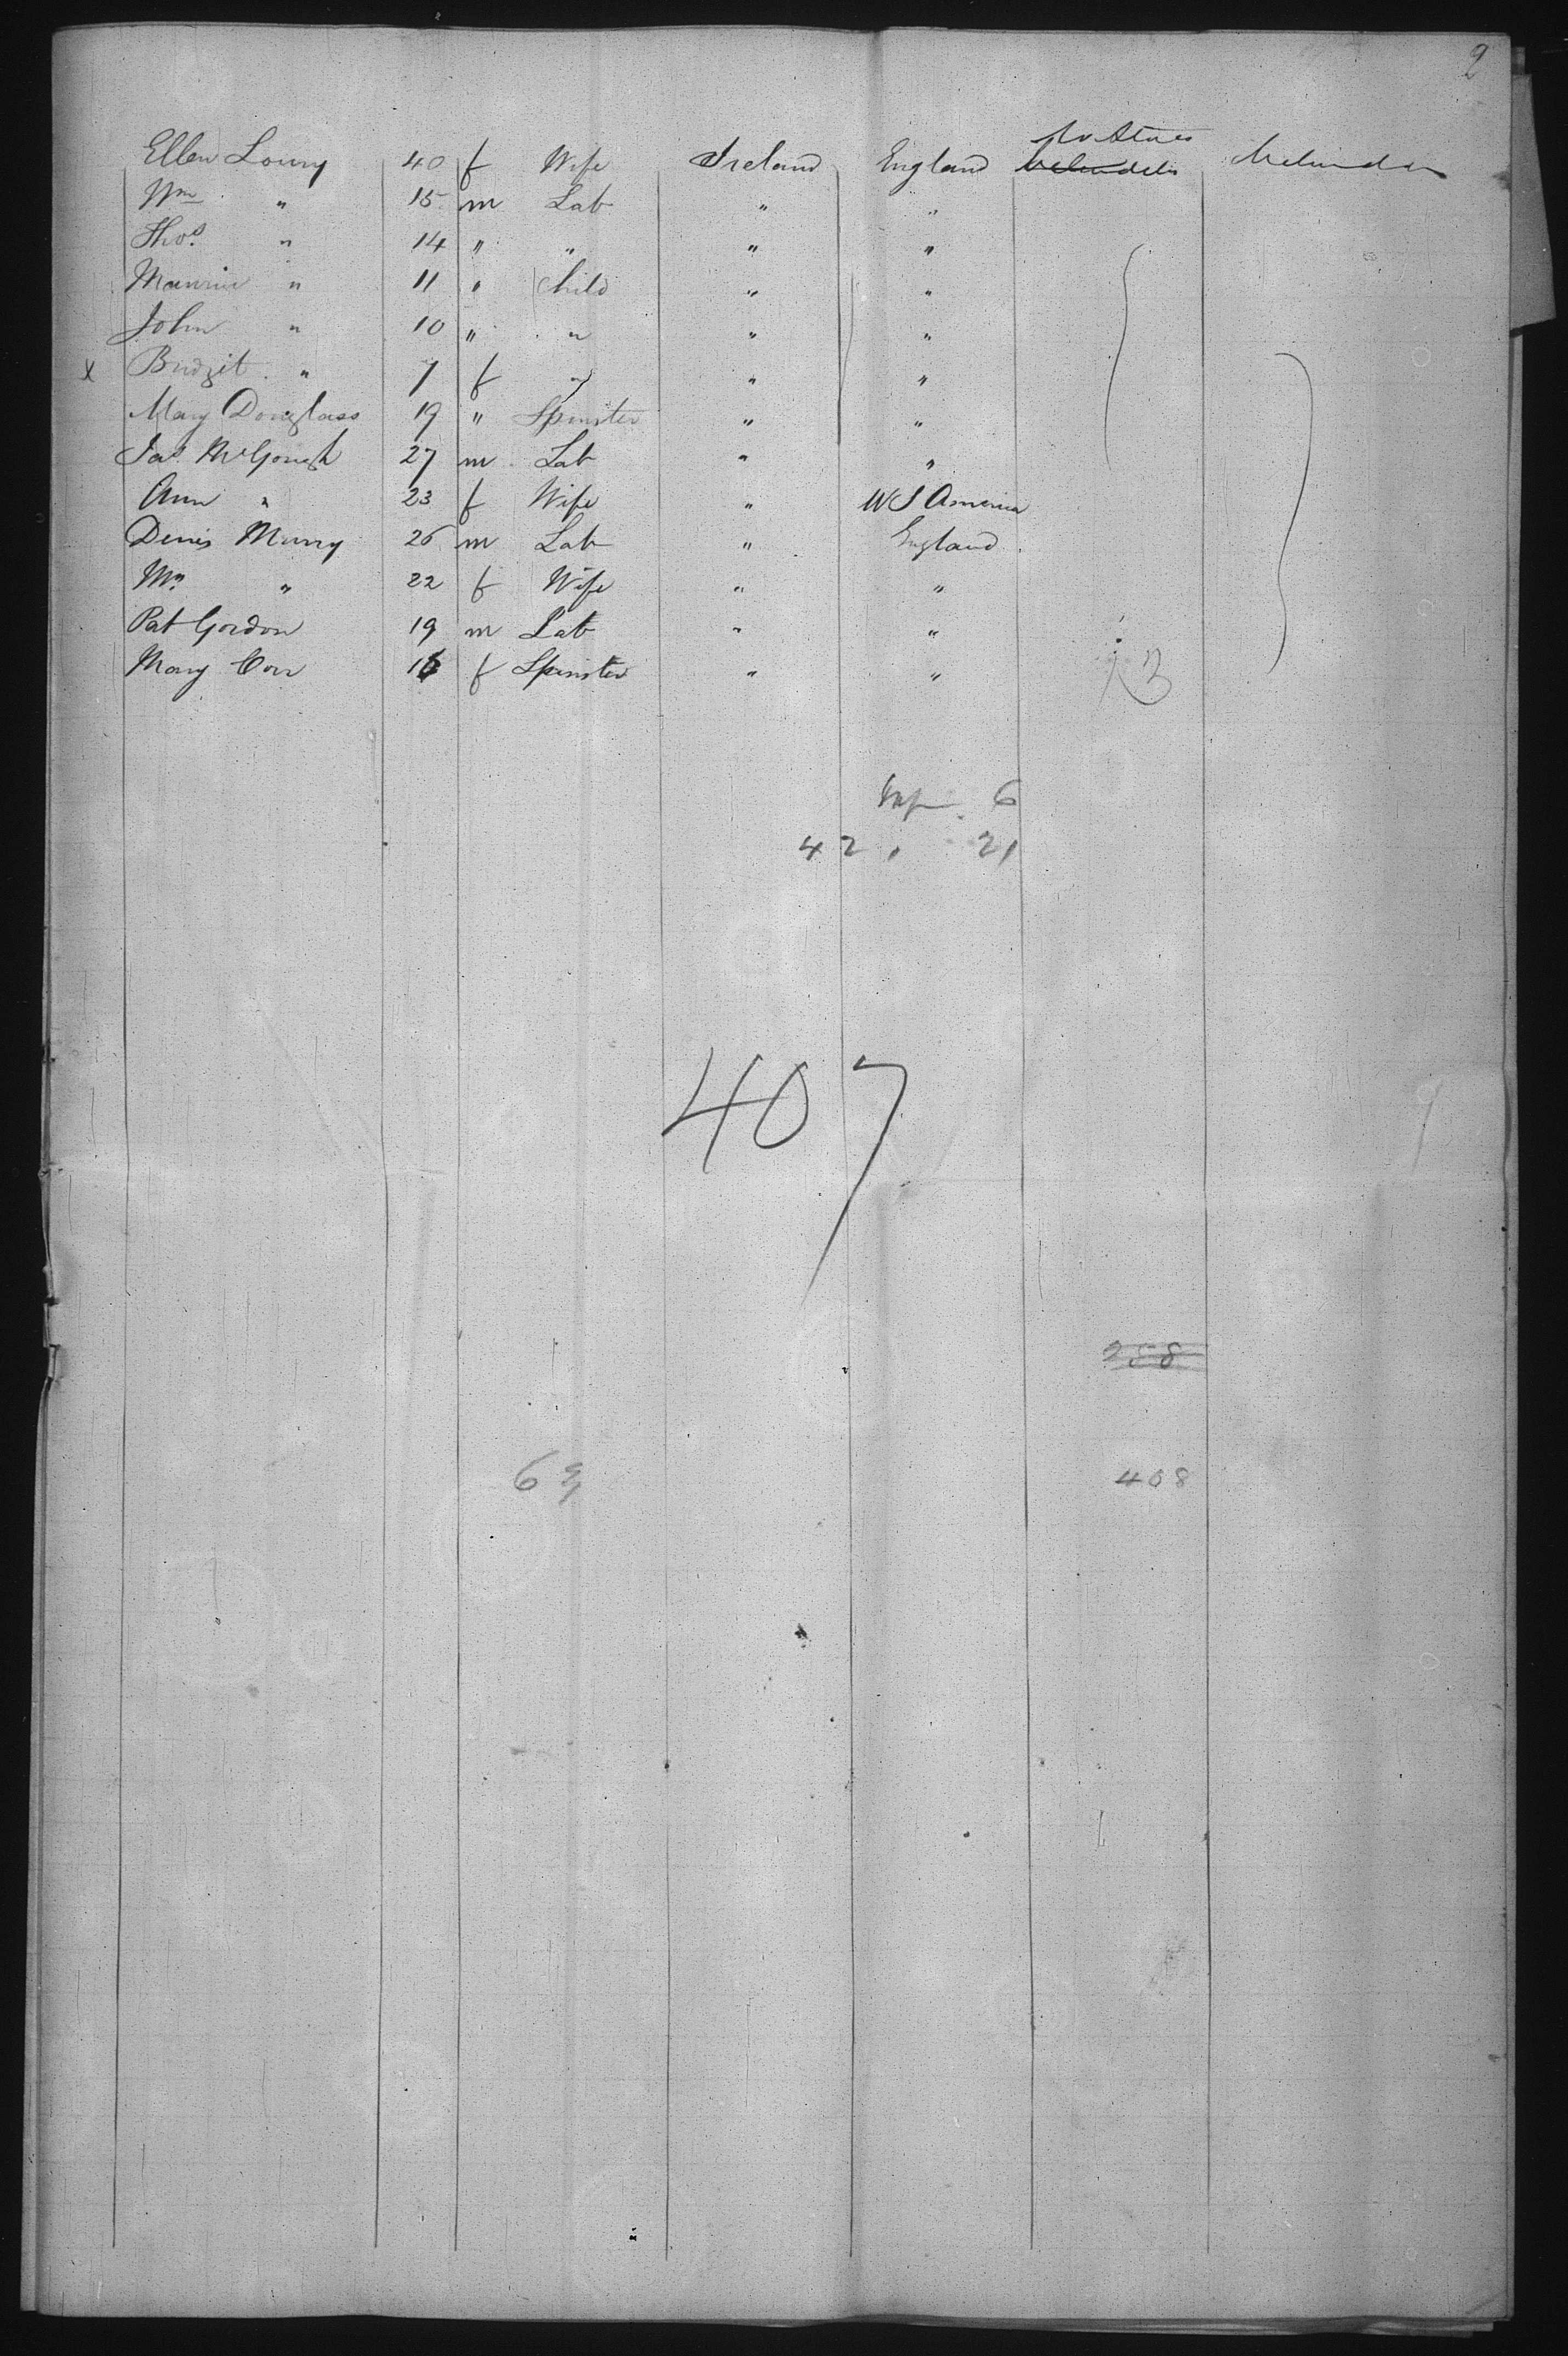 2
Ellen Lowry 40 f Wife Ireland England
Wm " 15 m Lab " "
Thos " 14 " " " "
Maurice " 11 " Child " "
John " 10 " " " "
x Bridgit " 7 f " " "
Mary Douglass 19 " Spinster " "
Jas McGough 27 m Lab " "
Ann " 23 f Wife " U S America
Denis Murry 26 m Lab " England
" 22 f Wife " "
Pat Gordon 19 m Lab " "
Mary Corr 16 f Spinster " "
6
42 " 21
407
258
408